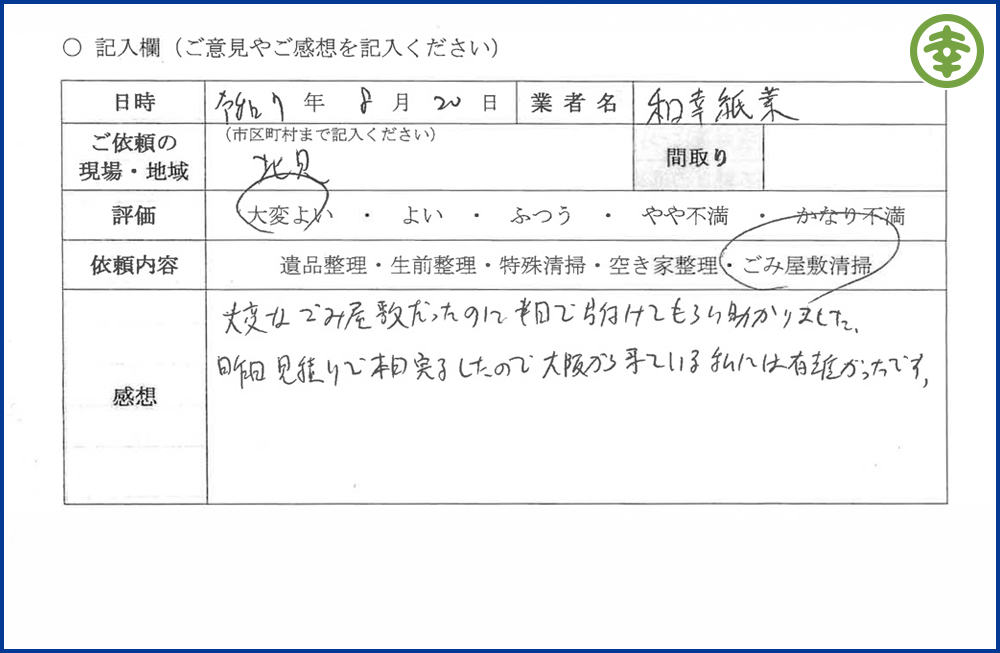 幸
○ 記入欄（ご意見やご感想を記入ください）
日時 令和7年 8月 20日 業者名 和幸紙業
ご依頼の現場・地域 （市区町村まで記入ください） 北見 間取り
評価 大変よい ・ よい ・ ふつう ・ やや不満 ・ かなり不満
依頼内容 遺品整理・生前整理・特殊清掃・空き家整理・ごみ屋敷清掃
感想
大変なごみ屋敷だったのに半日で片付けてもらい助かりました。
昨日見積りで本日完了したので大阪から来ている私には有難かったです。